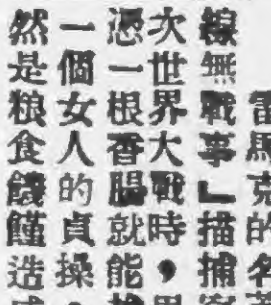 雷馬克的名
線無戰事」描捕
次世界大戰時，
憑一根香腸就能
一個女人的貞操
然是粮食饑饉造